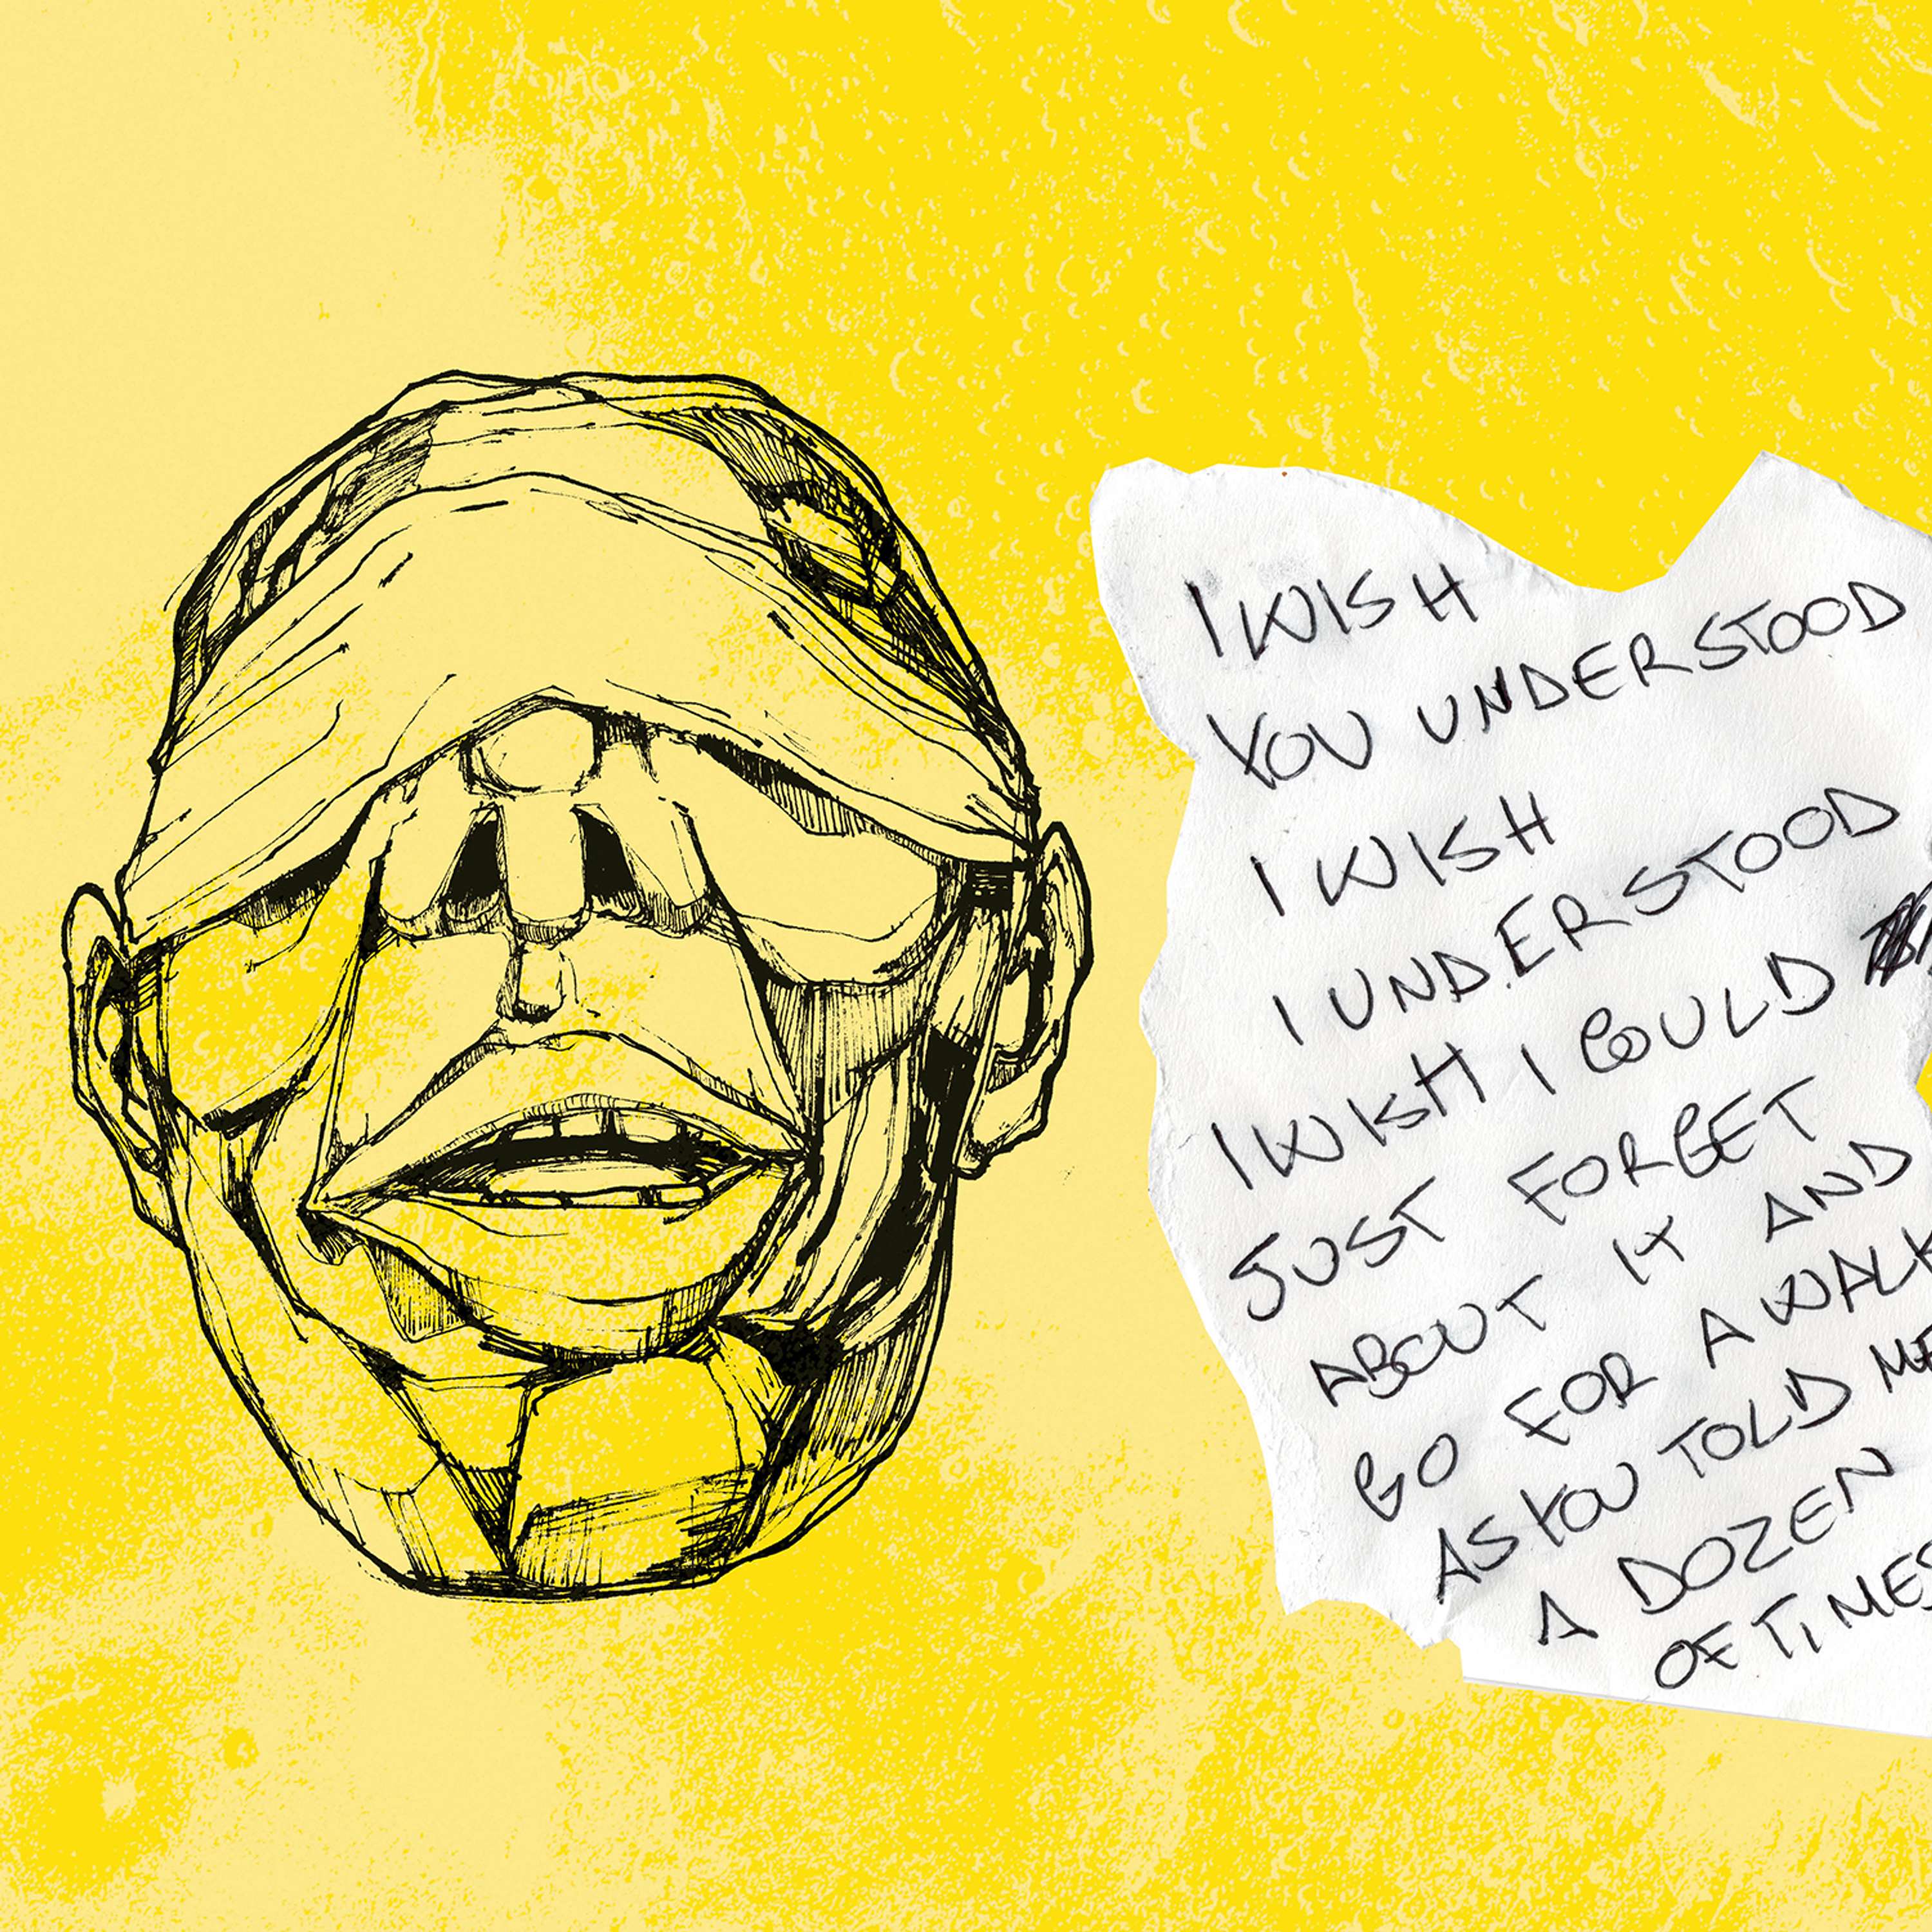 I WISH
YOU UNDERSTOOD
I WISH
I UNDERSTOOD
I WISH I COULD
JUST FORGET
ABOUT IT AND
GO FOR A WALK
AS YOU TOLD ME
A DOZEN
OF TIMES